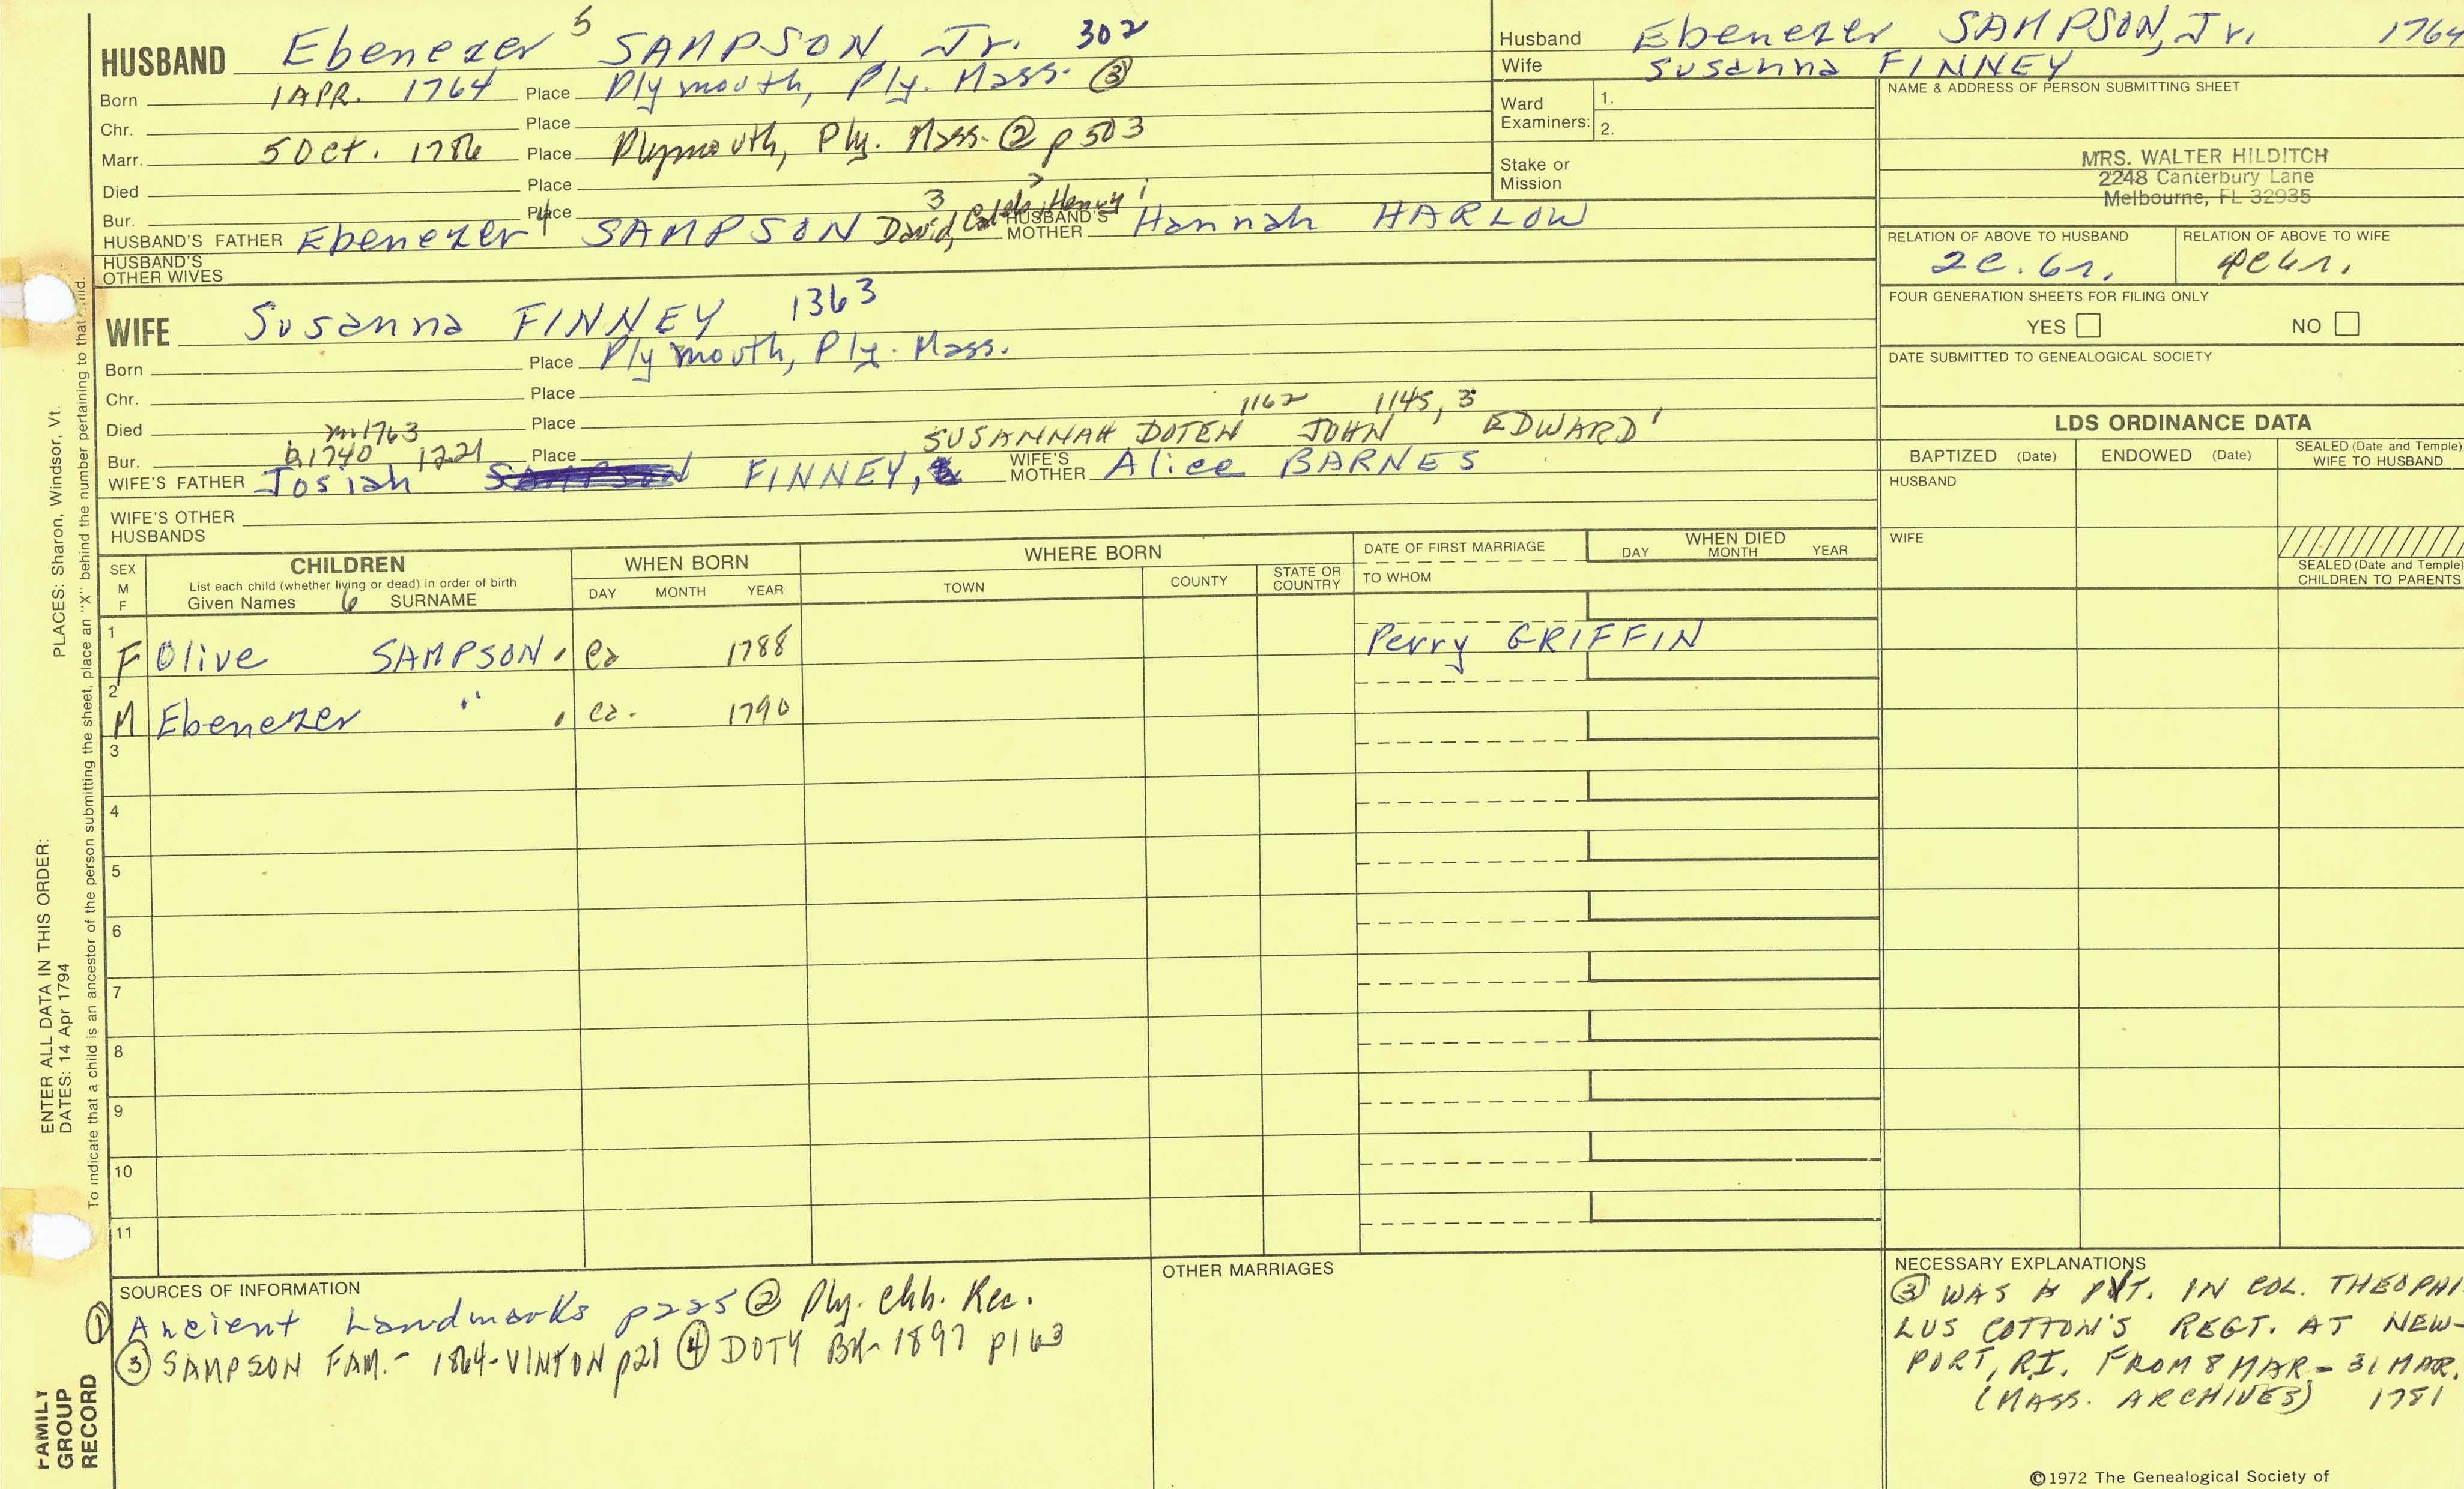 HUSBAND Ebenezer 5 SAMPSON Jr. 302
Born 1 APR. 1764 Place Plymouth, Ply. Mass. ③
Chr. Place
Marr. 5 Oct. 1786 Place Plymouth, Ply. Mass. ② p 503
Died Place
Bur. Place
3 Henry 1
HUSBAND'S FATHER Ebenezer 4 SAMPSON David, Caleb HUSBAND'S MOTHER Hannah HARLOW
HUSBAND'S OTHER WIVES
WIFE Susanna FINNEY 1363
Born Place Plymouth, Ply. Mass.
Chr. Place
1162 1145, 3
Died m 1763 Place SUSANNAH DOTEN JOHN EDWARD 1
Bur. b 1740 1221 Place
WIFE'S FATHER Josiah FINNEY, WIFE'S MOTHER Alice BARNES
WIFE'S OTHER HUSBANDS
Husband Ebenezer SAMPSON, Jr. 1764
Wife Susanna FINNEY
Ward Examiners: 1.
2.
Stake or Mission
NAME & ADDRESS OF PERSON SUBMITTING SHEET
MRS. WALTER HILDITCH
2248 Canterbury Lane
Melbourne, FL 32935
RELATION OF ABOVE TO HUSBAND RELATION OF ABOVE TO WIFE
2c. 6r. 4c 6r.
FOUR GENERATION SHEETS FOR FILING ONLY
YES NO
DATE SUBMITTED TO GENEALOGICAL SOCIETY
LDS ORDINANCE DATA
BAPTIZED (Date) ENDOWED (Date) SEALED (Date and Temple) WIFE TO HUSBAND
HUSBAND
WIFE
SEALED (Date and Temple) CHILDREN TO PARENTS
SEX M F CHILDREN WHEN BORN WHERE BORN DATE OF FIRST MARRIAGE WHEN DIED
List each child (whether living or dead) in order of birth
Given Names 6 SURNAME DAY MONTH YEAR TOWN COUNTY STATE OR COUNTRY TO WHOM DAY MONTH YEAR
1 F Olive SAMPSON, ca 1788 Perry GRIFFIN
2 M Ebenezer " , ca. 1790
3
4
5
6
7
8
9
10
11
SOURCES OF INFORMATION
① Ancient Landmarks p225 ② Ply. Chh. Rec.
③ SAMPSON FAM. - 1864-VINTON p21 ④ DOTY BK- 1897 p163
OTHER MARRIAGES
NECESSARY EXPLANATIONS
③ WAS A PVT. IN COL. THEOPHI-
LUS COTTON'S REGT. AT NEW-
PORT, R.I. FROM 8 MAR - 31 MAR.
(MASS. ARCHIVES) 1781
©1972 The Genealogical Society of
ENTER ALL DATA IN THIS ORDER:
DATES: 14 Apr 1794 PLACES: Sharon, Windsor, Vt.
To indicate that a child is an ancestor of the person submitting the sheet, place an "X" behind the number pertaining to that child.
FAMILY
GROUP
RECORD